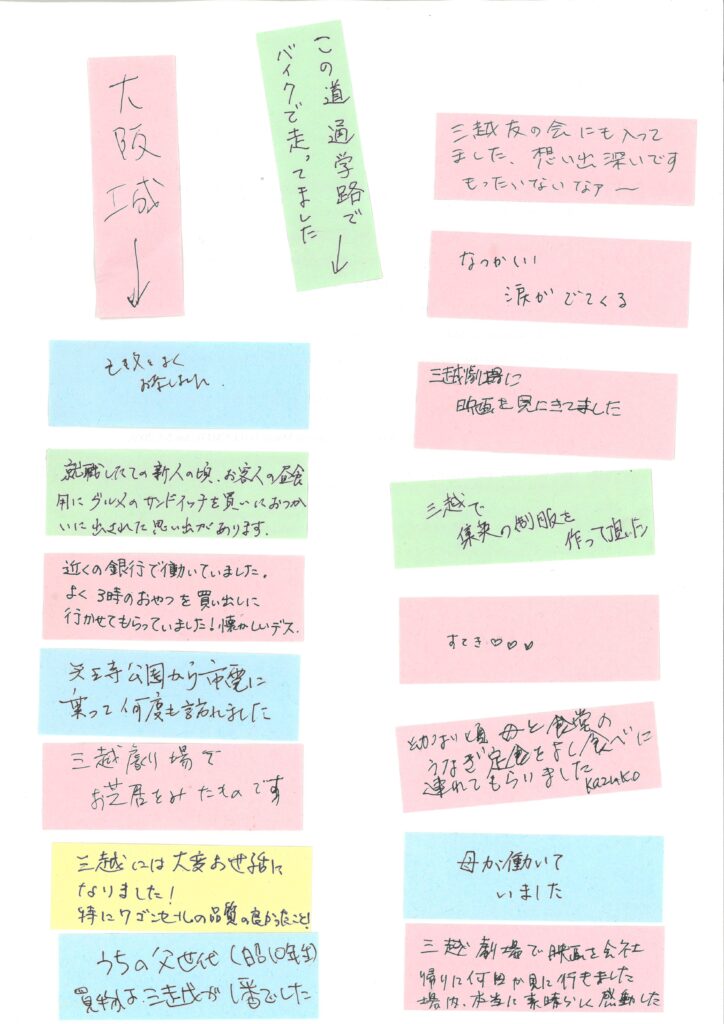 大阪城 ↓
この道通学路で ↓
バイクで走ってました
三越友の会にも入って
ました、想い出深いです
もったいないなァ〜
なつかしい
涙がでてくる
よく
三越劇場に
映画を見にきてました
就職したての新人の頃、お客人の昼食
用にグルメのサンドイッチを買いにおつか
いに出された思い出があります。
三越で
の制服を
作って頂いた
近くの銀行で働いていました。
よく3時のおやつを買い出しに
行かせてもらっていました!懐かしいデス.
すてき♡♡♡
天王寺公園から市電に
乗って何度も訪れました
幼ない頃 母と食堂の
うなぎ定食をよく食べに
連れてもらいました
Kazuko
三越劇場で
お芝居をみたものです
母が働いて
いました
三越には大変お世話に
なりました!
特にワゴンセールの品質の良かったこと!
三越劇場で映画を会社
帰りに何回か見に行きました
場内、本当に素晴らしく感動した
うちの父世代(昭10年生)
買物は三越が1番でした